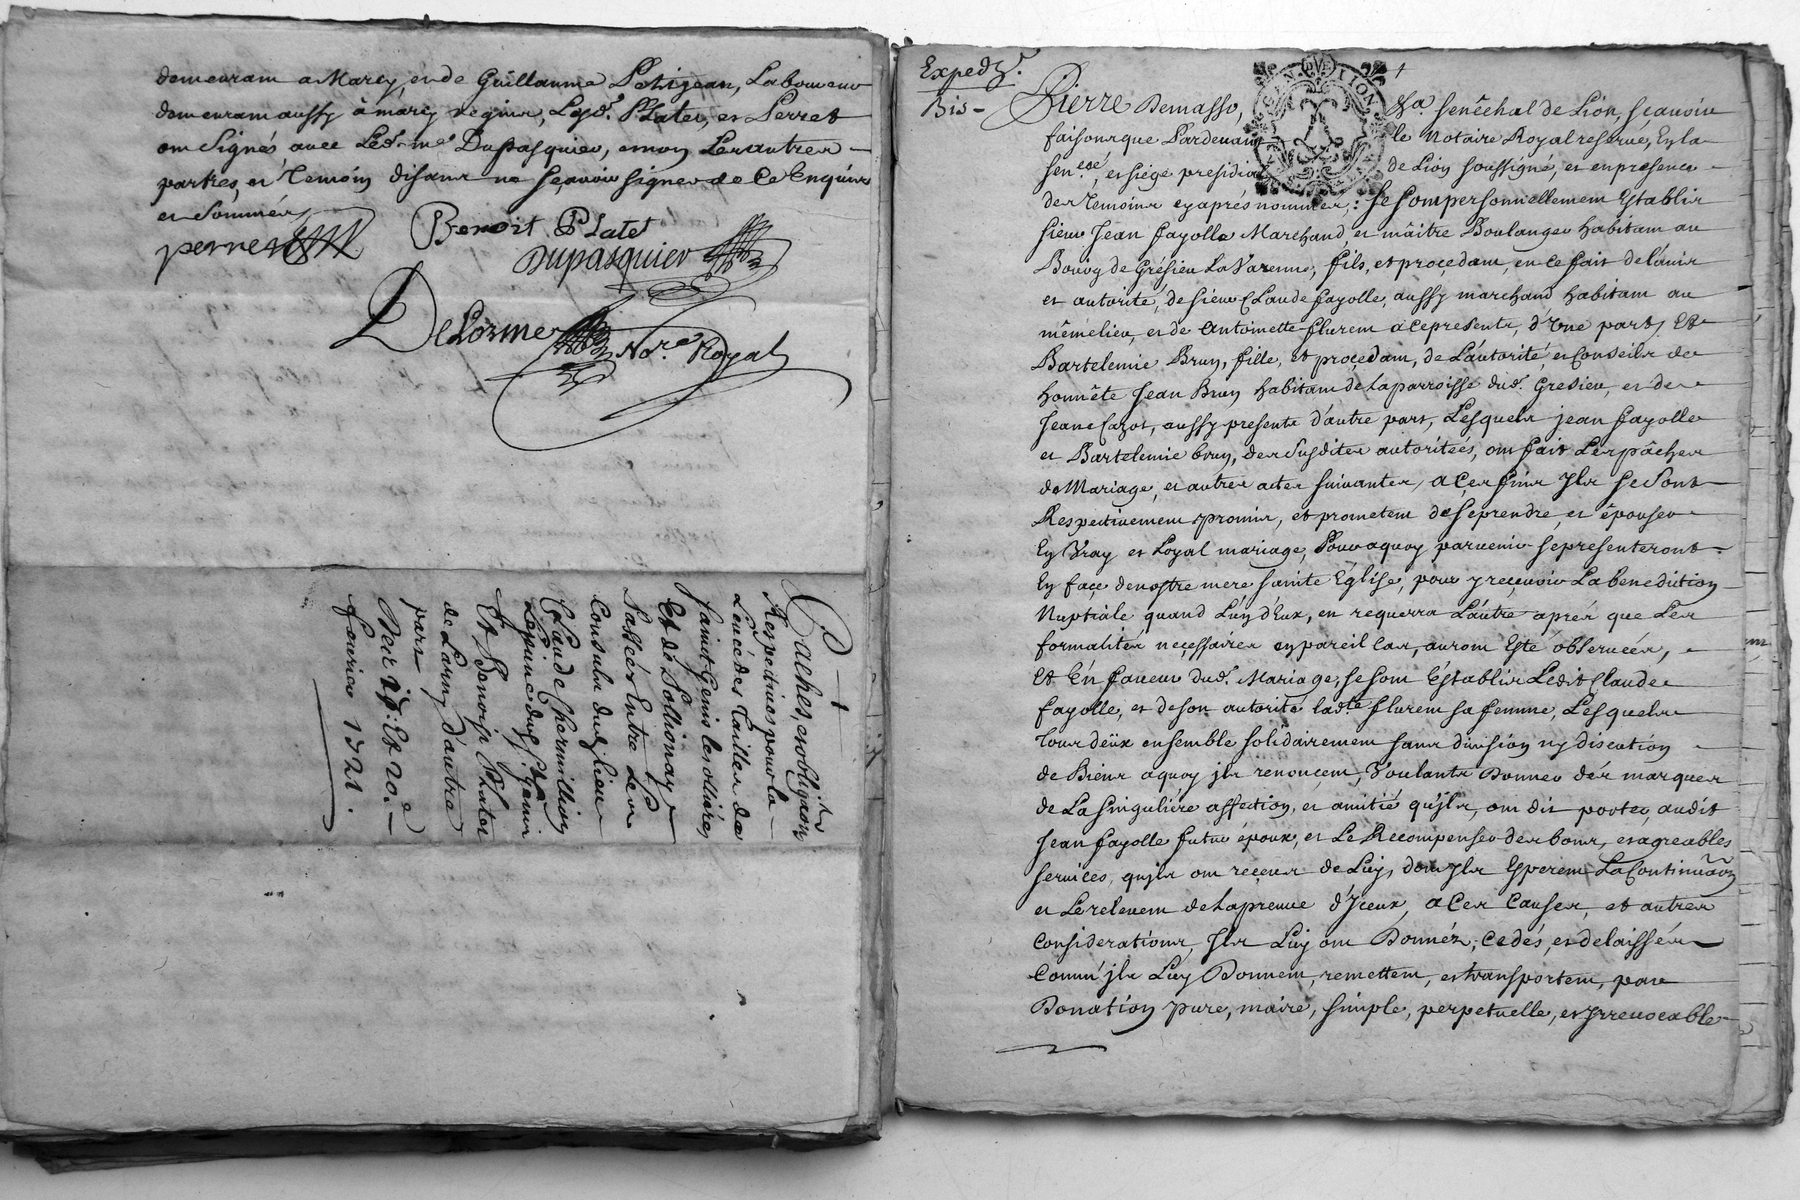 demeurant a Marcy, et de Guillaume Petitjean, Laboureur
demeurant aussy à marcy requis, Lesd. Plater, et Perret
ont Signés avec Led. me Dupasquier, et non Les autres
parties, et Temoin disant ne sçavoir signer de Ce Enquis
et Sommés
perret
Benoit Platet
Dupasquier
DeLorme Nore Royal
Paches, et obligaõn
Respectives pour la
Leveé des Tailles de
Saint Genis les ollières,
Et de Sollionay
Passées Entre Les
Consuls dud. lieu
Claude Chermillion
dud. St. Genis
Et Benoist Platet
de Larny d'autre
part
Des 18: Et 20e
fevrier 1721.
Expedz.
Bis -
GEN. DE LION
Pierre Demasso, Sa. Senêchal de Lion, sçavoir
faisons que Pardevant le Notaire Royal reservé, En la
sen.cée, et siége presidial de Lion soussigné, et en presence
des Temoins cy aprés nommés, : se sont personnellement Establis
sieur Jean fayolle Marchand et maître Boulanger habitant au
Bourg de Grésieu La Varenne, fils, et proçedant, en Ce fait de l'avis
et autorité, de sieur Claude fayolle, aussy marchand habitant au
même lieu, et de Antoinette flurem a Ce presente, d'Une part, Et
Bartelemie Brun, fille, et proçedant, de L'autorité, et Conseils de
honnête Jean Brun habitant de La parroisse dud. Gresieu, et de
Jeane Cazot, aussy presente d'autre part, Lesquels jean fayolle
et Bartelemie brun, des susdites autoriteés, ont fait Les pâches
de Mariage, et autres actes suivantes, a Çes fins Jls se sont
Respectivement promis, et prometent de se prendre, et épouser
En Vray et Loyal mariage, Pour a quoy parvenir se presenteront
En façe de nostre mere sainte Église, pour y reçevoir La benediction
Nuptiale quand L'un d'Eux, en requerra L'autre aprés que Les
formalités neçessaires en pareil Cas, auront Esté observeés,
Et En faveur dud. Mariage, se sont Establis Ledit Claude
fayolle, et de son autorité ladte flurem sa femme, Lesquels
Tous deux ensemble solidairement sans division ny discution
de Biens a quoy jls renonçent, Voulants Donner dés marques
de La singuliére affection, et amitié qu'jls, ont dit porter, audit
Jean fayolle futur époux, et Le Recompenser des bons, et agreables
services, qujls ont reçeus de Luy, dont Jls Esperent La Continuãon
et Le relevent de La preuve d'Jceux, a Ces Causes, et autres
Considerations, Jls Luy ont Donnéz, Cedés, et delaissés
Comm' jls Luy Donnent, remettent, et transportent, par
Donation pure, maire, simple, perpetuelle, et Jrrevocable